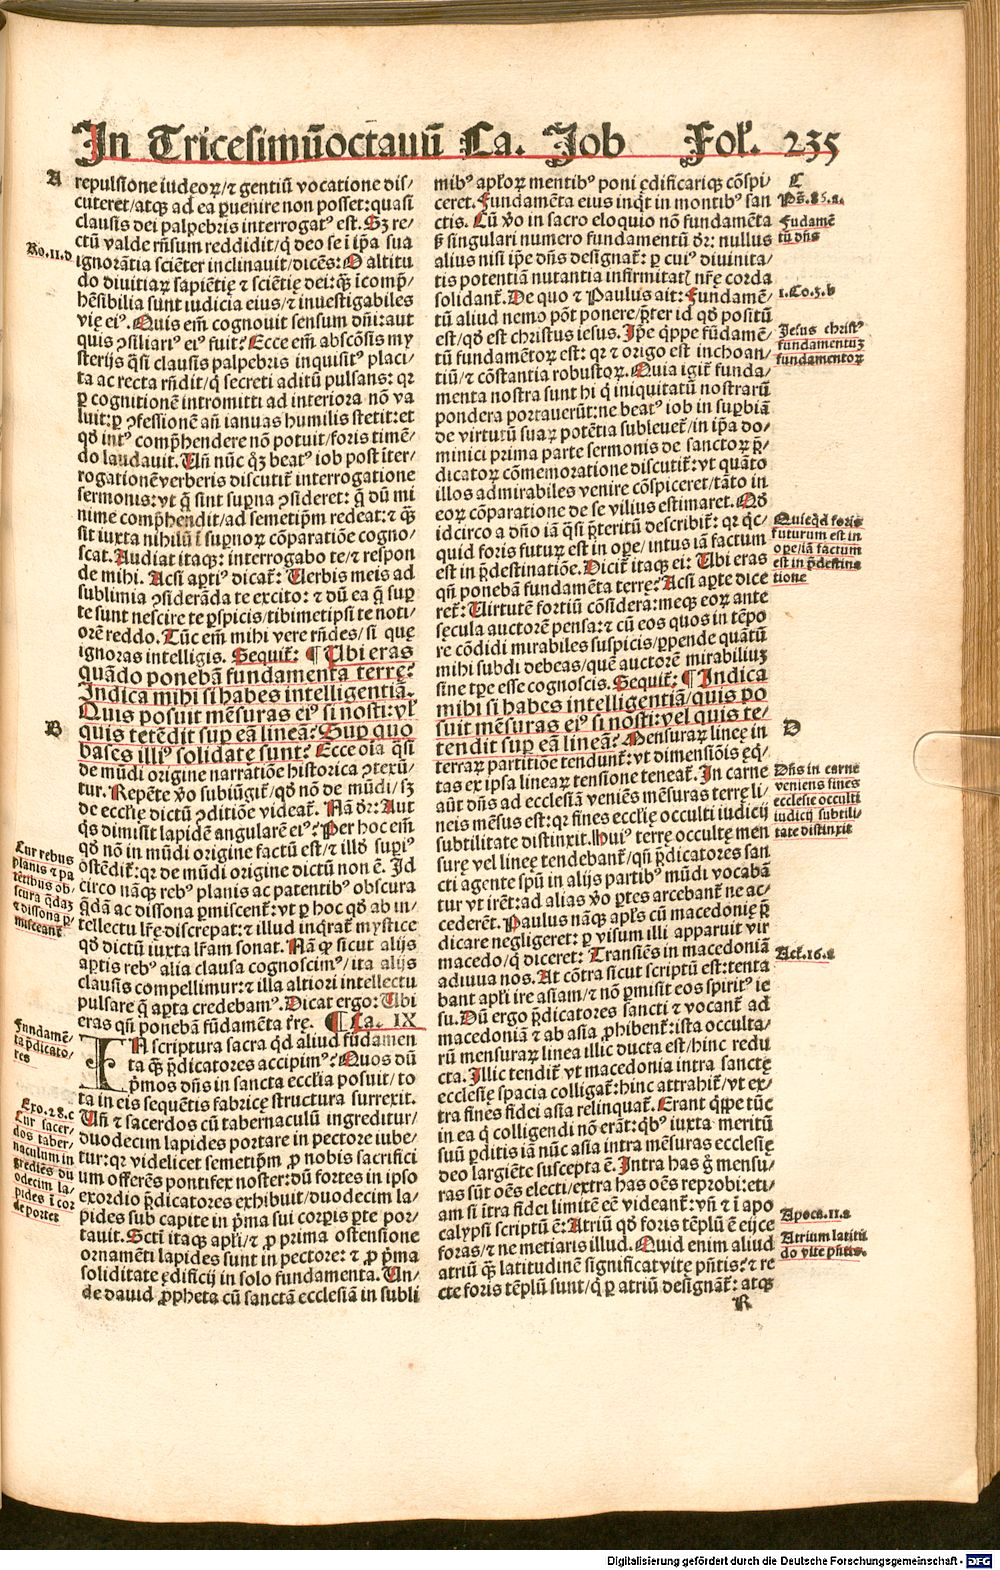 In Tricesimūoctauū Ca. Job Fol. 235
A
repulsione iudeoꝝ/⁊ gentiū vocatione dis-
cuteret/atqꝫ ad ea ꝑuenire non posset: quasi
clausis dei palpebris interrogatꝰ est. Sꝫ re-
ctū valde rñsum reddidit/q̇ deo se ī ip̄a sua
ignorātia sciēter inclinauit/dicēs: O altitu
do diuitiaꝝ sapiētię ⁊ sciētię dei: q̄ꝫ īcomp̄-
hēsibilia sunt iudicia eius/⁊ inuestigabiles
vię eiꝰ. Quis em̄ cognouit sensum dn̄i: aut
quis ꝯsiliariꝰ eiꝰ fuit? Ecce em̄ abscōsis my
sterijs q̄si clausis palpebris inquisitꝰ placi-
ta ac recta rñdit/q̇ secreti aditū pulsans: qꝛ
ꝑ cognitionē intromitti ad interiora nō va
luit: ꝑ ꝯfessionē an̄ ianuas humilis stetit: et
qđ intꝰ comp̄hendere nō potuit/foris timē-
do laudauit. Vn̄ nūc q̇ꝫ beatꝰ iob post iter-
rogationē verberis discutit᷑ interrogatione
sermonis: vt q̄ sint suꝑna ꝯsideret: q̄ dū mi
nime comp̄hendit/ad semetip̄m redeat: ⁊ q̄ꝫ
sit iuxta nihilū ī suꝑnoꝝ cōparatiōe cogno-
scat. Audiat itaqꝫ: interrogabo te/⁊ respon
de mihi. Acsi aꝑtiꝰ dicat᷑: Verbis meis ad
sublimia ꝯsiderāda te excito: ⁊ dū ea q̄ suꝑ
te sunt nescire te ꝑspicis/tibimetipsi te noti-
orē reddo. Tūc em̄ mihi vere rñdes/si quę
ignoras intelligis. Sequit᷑: ¶ Vbi eras
quādo ponebā fundamenta terrę?
Indica mihi si habes intelligentiā.
Quis posuit mēsuras eiꝰ si nosti: vł
quis tetēdit suꝑ eā lineā? Suꝑ quo
bases illiꝰ solidatę sunt? Ecce oīa q̄si
de mūdi origine narratiōe historica ꝯtexū-
tur. Repēte ṽo subiūgit᷑/qđ nō de mūdi/sꝫ
de ecclię dictū ꝯditiōe videat᷑. Nā dr̄: Aut
q̇s dimisit lapidē angularē eiꝰ? Per hoc em̄
qđ nō in mūdi origine factū est/⁊ illđ suꝑiꝰ
ostēdit᷑: qꝛ de mūdi origine dictū non ē. Id
circo nāqꝫ rebꝰ planis ac patentibꝰ obscura
q̄dā ac dissona ꝑmiscent᷑: vt ꝑ hoc qđ ab in-
tellectu lr̄ę discrepat: ⁊ illud inq̄rat᷑ mystice
qđ dictū iuxta lr̄am sonat. Nā q̄ sicut alijs
aꝑtis rebꝰ alia clausa cognoscimꝰ/ita alijs
clausis compellimur: ⁊ illa altiori intellectu
pulsare q̄ aꝑta credebamꝰ. Dicat ergo: Vbi
eras qn̄ ponebā fūdamēta tr̄re. ¶ Ca. IX
IN scriptura sacra qđ aliud fūdamen
ta q̄ꝫ p̄dicatores accipimꝰ? Quos dū
p̄mos dn̄s in sancta ecclia posuit/to
ta in eis sequētis fabricę structura surrexit.
Vn̄ ⁊ sacerdos cū tabernaculū ingreditur/
duodecim lapides portare in pectore iube-
tur: qꝛ videlicet semetip̄m ꝓ nobis sacrifici
um offerēs pontifex noster: dū fortes in ipso
exordio p̄dicatores exhibuit/duodecim la-
pides sub capite in p̄ma sui corꝑis ꝑte por-
tauit. Scti itaqꝫ apłi/⁊ ꝓ prima ostēsione
ornamēti lapides sunt in pectore: ⁊ ꝓ p̄ma
soliditate ędificij in solo fundamenta. Vn-
de dauid ꝓpheta cū sanctā ecclesiā in subli
Ro.11.d
B
Cur rebus
planis ⁊ pa
tētibus ob-
scura q̄daꝫ
⁊ dissona ꝑ
misceant᷑
Fundamē-
ta p̄dicato-
res
Exo.28.c
Cur sacer-
dos taber-
naculum in
grediēs du
odecim la-
pides ī cor
de portet
mibꝰ apłoꝝ mentibꝰ poni ędificariqꝫ cōspi-
ceret. Fundamēta eius inq̇t in montibꝰ san
ctis. Cū ṽo in sacro eloquio nō fundamēta
sꝫ singulari numero fundamentū dr̄: nullus
alius nisi ip̄e dn̄s designat᷑: ꝑ cuiꝰ diuinita-
tis potentiā nutantia infirmitatꝭ nr̄ę corda
solidant᷑. De quo ⁊ Paulus ait: Fundamē-
tū aliud nemo pōt ponere/p̄ter id qđ positū
est/qđ est christus iesus. Ip̄e q̇ppe fūdamē-
tū fundamētoꝝ est: qꝛ ⁊ origo est inchoan-
tiū/⁊ cōstantia robustoꝝ. Quia igit᷑ funda-
menta nostra sunt hi q̇ iniquitatū nostrarū
pondera portauerūt: ne beatꝰ iob in suꝑbiā
de virtutū suaꝝ potētia subleuet᷑/in ip̄a do-
minici prima parte sermonis de sanctoꝝ p̄-
dicatoꝝ cōmemoratione discutit᷑: vt quāto
illos admirabiles venire cōspiceret/tāto in
eoꝝ cōparatione de se vilius estimaret. Qđ
idcirco a dn̄o iā q̄si p̄teritū describit᷑: qꝛ q̇c-
quid foris futuꝝ est in oꝑe/intus iā factum
est in p̄destinatiōe. Dicit᷑ itaqꝫ ei: Vbi eras
qn̄ ponebā fundamēta terrę? Acsi aꝑte dice
ret᷑: Virtutē fortiū cōsidera: meqꝫ eoꝝ ante
secula auctorē pensa: ⁊ cū eos quos in tēpo
re cōdidi mirabiles suspicis/ꝑpende quātū
mihi subdi debeas/quē auctorē mirabiliuꝫ
sine tꝑe esse cognoscis. Sequit᷑: ¶ Indica
mihi si habes intelligentiā/quis po
suit mēsuras eiꝰ si nosti: vel quis te-
tendit suꝑ eā lineā? Mensuraꝝ lineę in
terraꝝ partitiōe tendunt᷑: vt dimensiōis ęq̄-
tas ex ipsa lineaꝝ tensione teneat᷑. In carne
aūt dn̄s ad ecclesiā veniēs mēsuras terrę li-
neis mēsus est: qꝛ fines ecclię occulti iudicij
subtilitate distinxit. Huiꝰ terrę occultę men
surę vel lineę tendebant᷑/qn̄ p̄dicatores san
cti agente spū in alijs partibꝰ mūdi vocabā
tur vt irēt: ad alias ṽo ꝑtes arcebant᷑ ne ac-
cederēt. Paulus nāqꝫ apłs cū macedonię p̄
dicare negligeret: ꝑ visum illi apparuit vir
macedo/q̇ diceret: Transiēs in macedoniā
adiuua nos. At cōtra sicut scriptū est: tenta
bant apłi ire asiam/⁊ nō ꝑmisit eos spiritꝰ ie
su. Dū ergo p̄dicatores sancti ⁊ vocant᷑ ad
macedoniā ⁊ ab asia ꝓhibent᷑: ista occulta-
rū mensuraꝝ linea illic ducta est/hinc redu
cta. Illic tendit᷑ vt macedonia intra sanctę
ecclesię spacia colligat᷑: hinc attrahit᷑/vt ex-
tra fines fidei asia relinquat᷑. Erant q̇ppe tūc
in ea q̇ colligendi nō erāt: q̇bꝰ iuxta meritū
suū ꝑditis iā nūc asia intra mēsuras ecclesię
deo largiēte suscepta ē. Intra has g̊ mensu-
ras sūt oēs electi/extra has oēs reprobi: eti-
am si itra fidei limitē eē videant᷑: vn̄ ⁊ ī apo
calypsi scriptū ē: Atriū qđ foris tēplū ē eijce
foras/⁊ ne metiaris illud. Quid enim aliud
atriū q̄ꝫ latitudinē significat vitę p̄ntis? ⁊ re
cte foris tēplū sunt/q̇ ꝑ atriū designāt᷑: atqꝫ
R
C
Ps̄.85.a.
Fūdamē
tū dn̄s
1.Co.3.b
Jesus christꝰ
fundamentuꝫ
fundamentoꝝ
Quicq̇d foris
futurum est in
oꝑe/iā factum
est in p̄destina
tione
D
Dn̄s in carne
veniens fines
ecclesie occulti
iudicij subtili-
tate distinxit
Act᷑.16.a
Apoca.11.a
Atrium latitu
do vite p̄ntis.
Digitalisierung gefördert durch die Deutsche Forschungsgemeinschaft - DFG